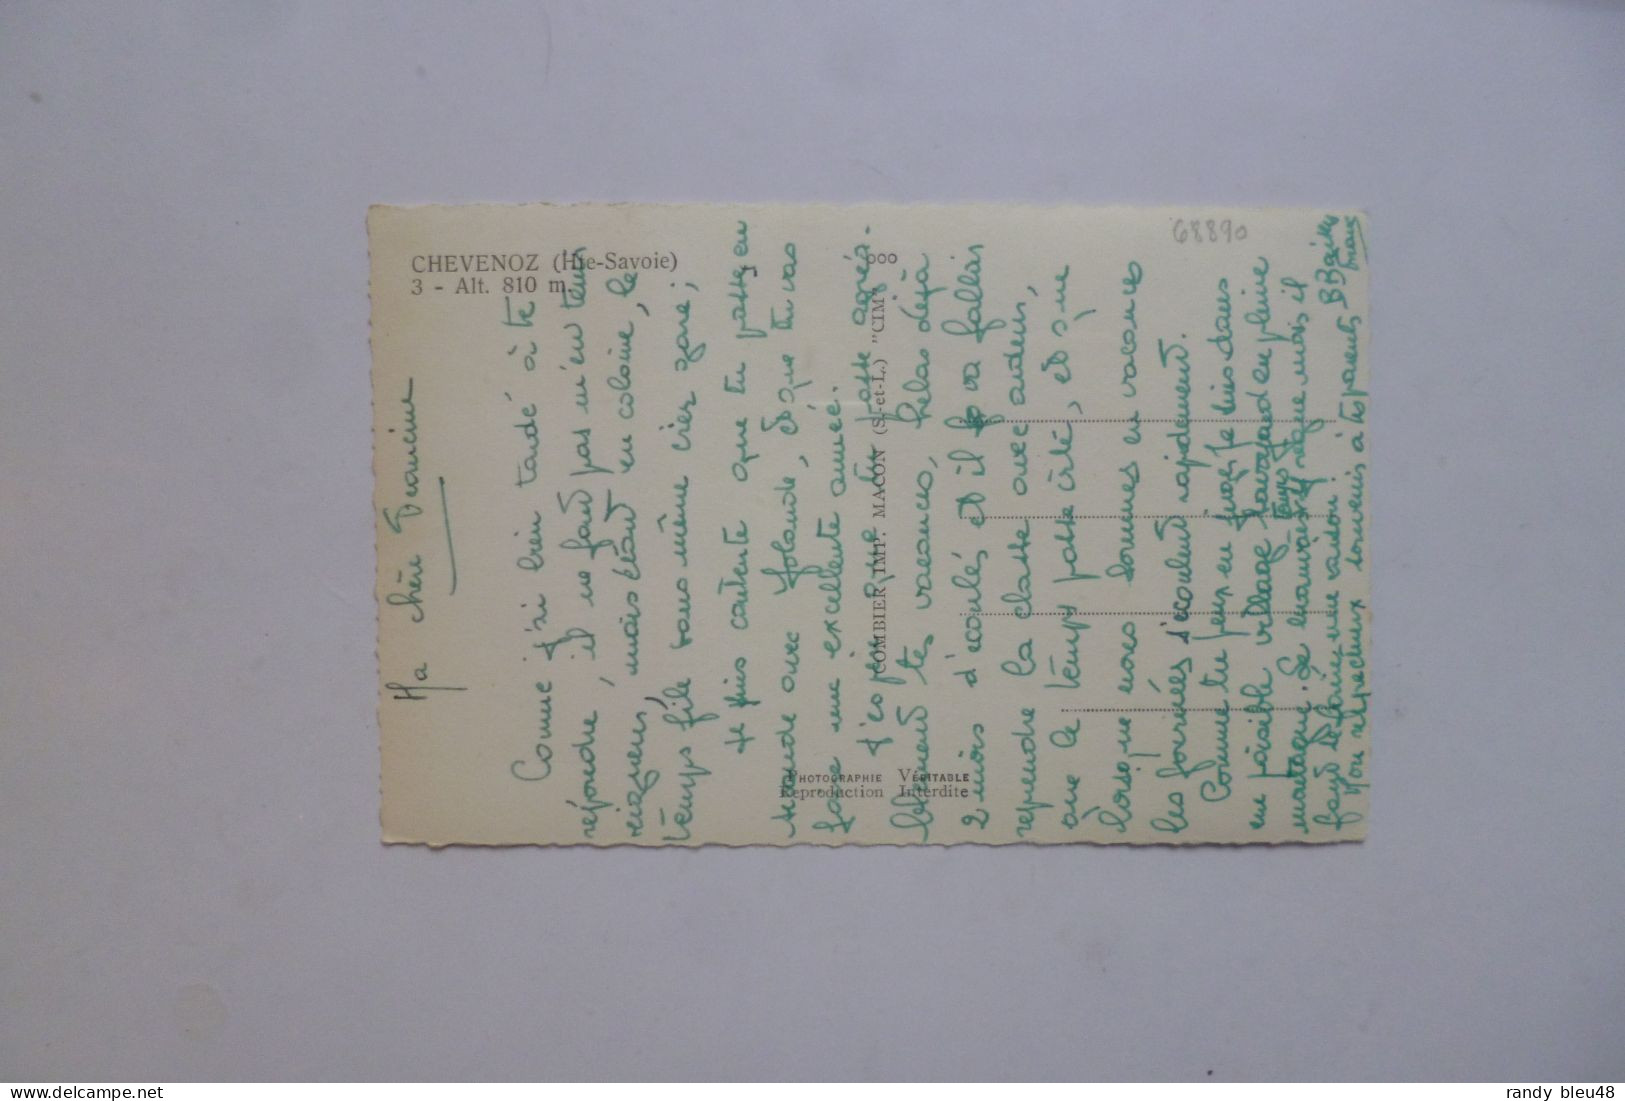 CHEVENOZ (Hte-Savoie)
3 - Alt. 810 m.
68890
PHOTOGRAPHIE VÉRITABLE
Reproduction Interdite
COMBIER IMP. MACON (S.-et-L.) "CIM"
Ma chère Francine
Comme j'ai bien tardé à te
répondre, il ne faut pas m'en tenir
rigueur, mais étant en colonie, le
temps file sans même crier gare;
je suis contente que tu passes en
seconde avec Yolande, et que tu vas
faire une excellente année.
J'espère que tu passe agréa-
blement tes vacances, helas déjà
2 mois d'écoulés et il va falloir
reprendre la classe avec ardeur,
que le temps passe vite, est que
lorsque nous sommes en vacances
les journées s'écoulent rapidement.
Comme tu peux en juger je suis dans
un paisible village savoyard en pleine
montagne. Le mauvais temps règne mais il
faut se faire une raison.
Mon respectueux souvenir à tes parents
BBaisers
68890
randy bleu48